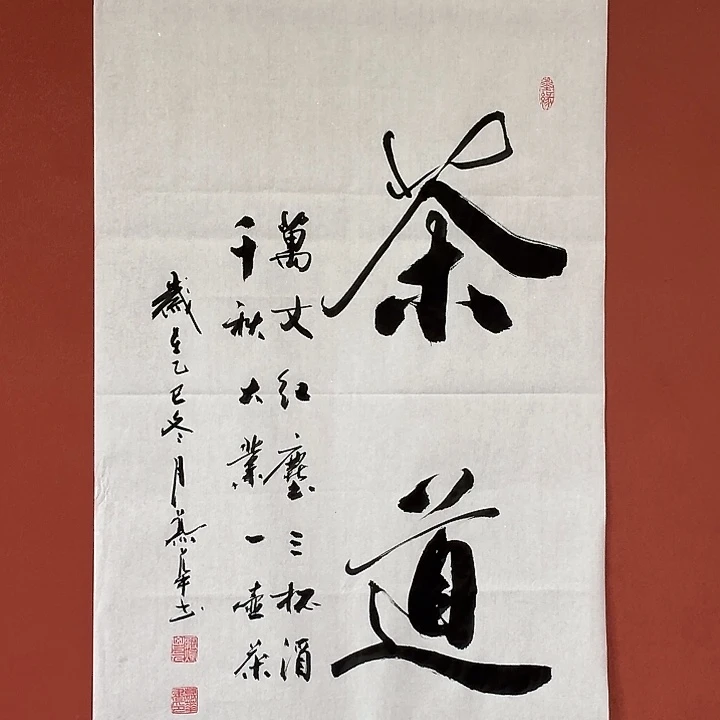 茶道
萬丈红塵三杯酒
千秋大業一壺茶
歲在乙巳冬月
墨缘